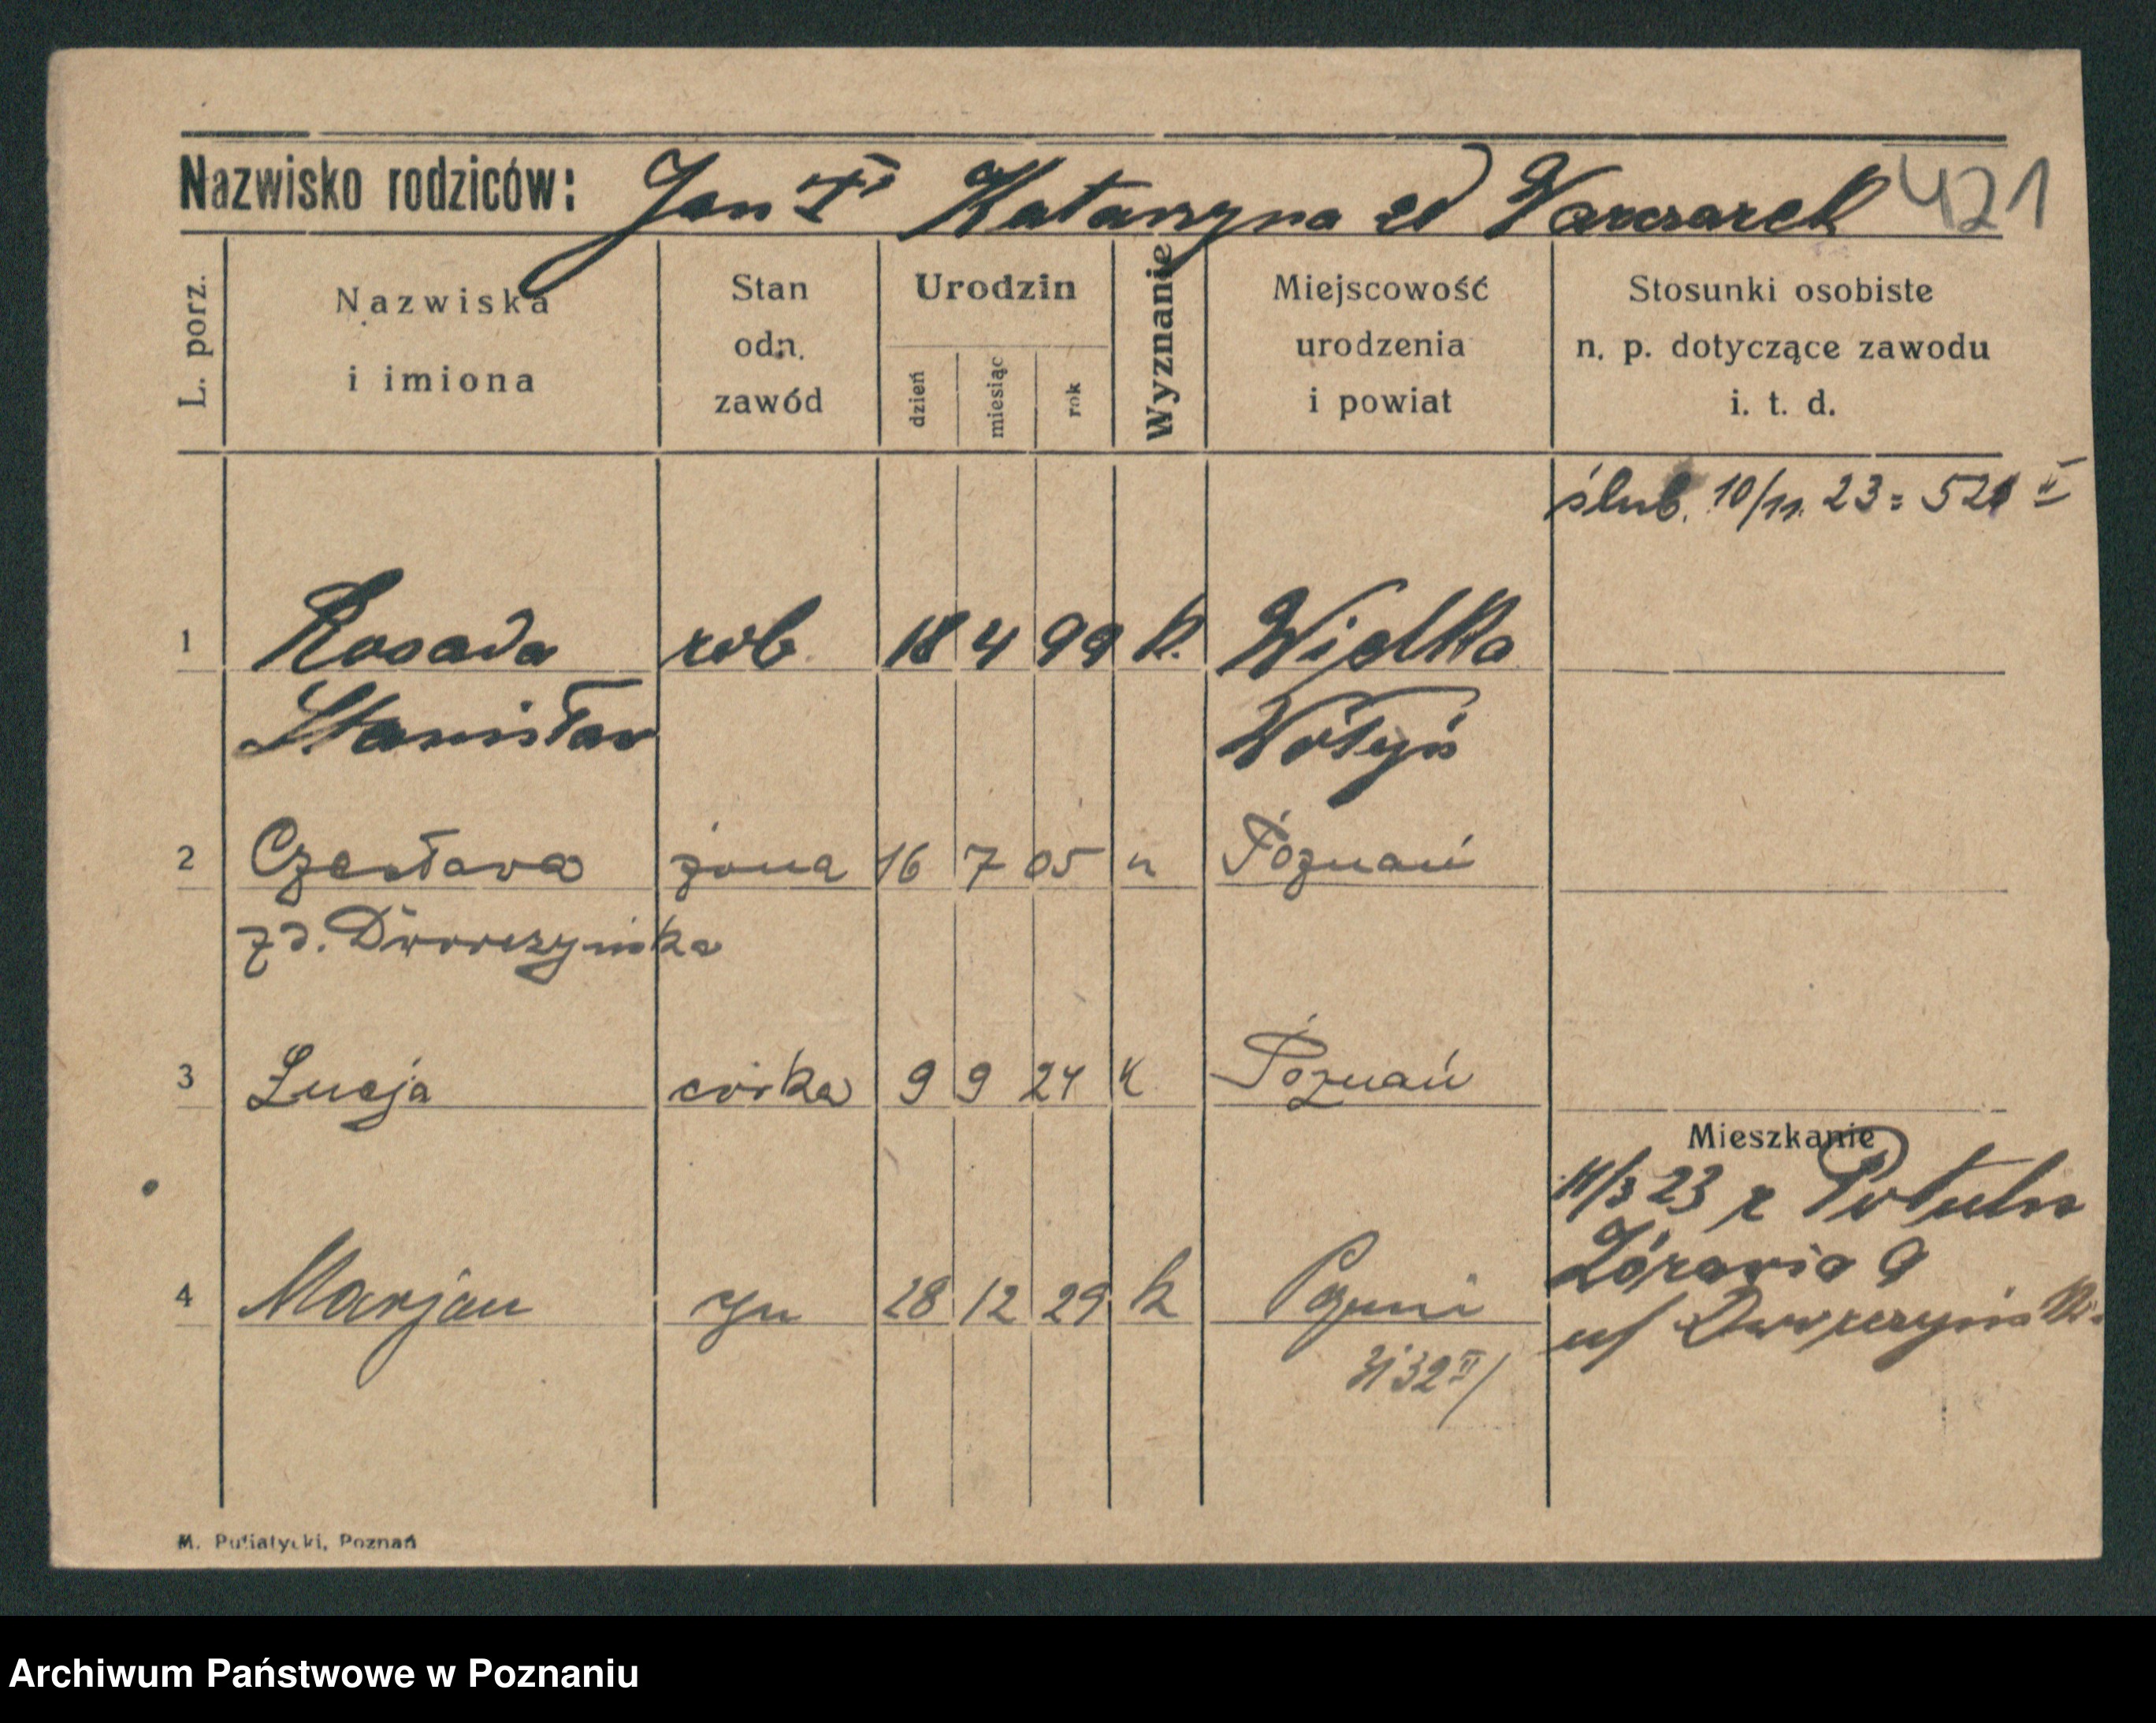 Nazwisko rodziców: Jan Katarzyna zd 421
L. porz.
Nazwiska i imiona
Stan odn. zawód
Urodzin
dzień miesiąc rok
Wyznanie
Miejscowość urodzenia i powiat
Stosunki osobiste n. p. dotyczące zawodu i. t. d.
ślub. 10/11. 23 = 521 II
1 Rosada rob 18 4 99 k. Wielka
Stanisław
2 Czesława żona 16 7 05 Poznań
zd. Dworczyńska
3 Łucja córka 9 9 24 k Poznań
Mieszkanie
23 z
4 Marjan syn 28 12 29 k
Żórawia 9
u/
M. Putiatycki, Poznań
Archiwum Państwowe w Poznaniu